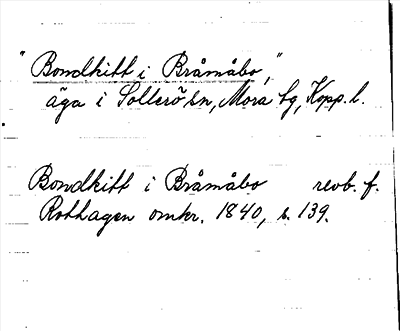 "Bondkitt i Bråmåbo,"
äga i Sollerö sn, Mora tg, Kopp. l.
Bondkitt i Bråmåbo revb. f.
Rothagen omkr. 1840, s. 139.